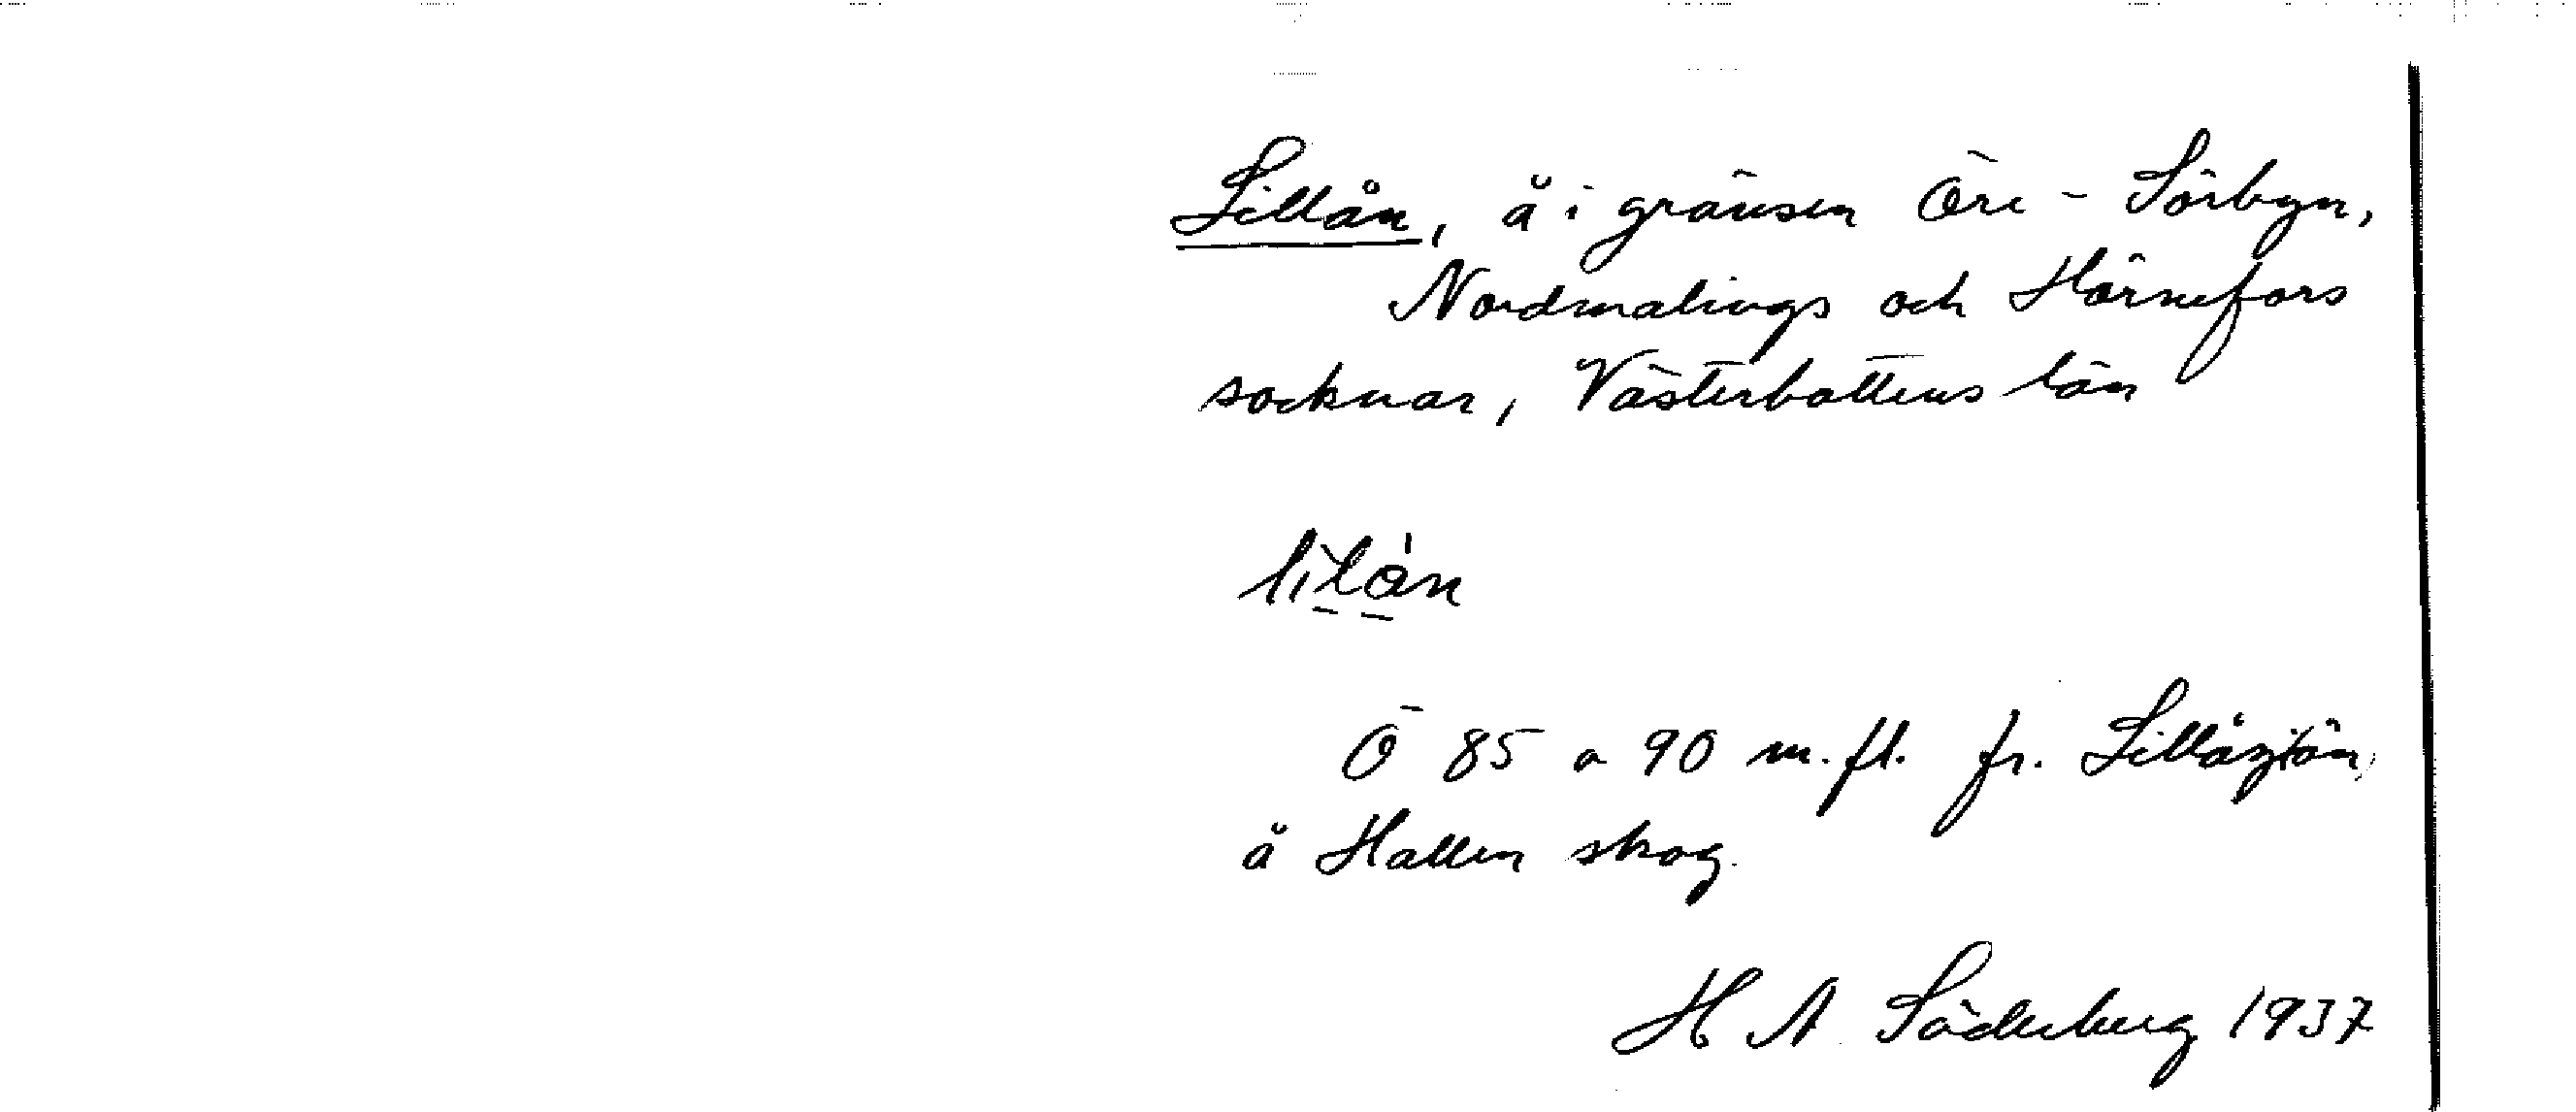 Lillån, å i gränsen Öre - Sörbyn,
Nordmalings och Hörnefors
socknar, Västerbottens län
lìlån
Ö 85 o 90 m.fl. fr. Lillåsjön,
å Hallen skog.
H A Söderberg 1937